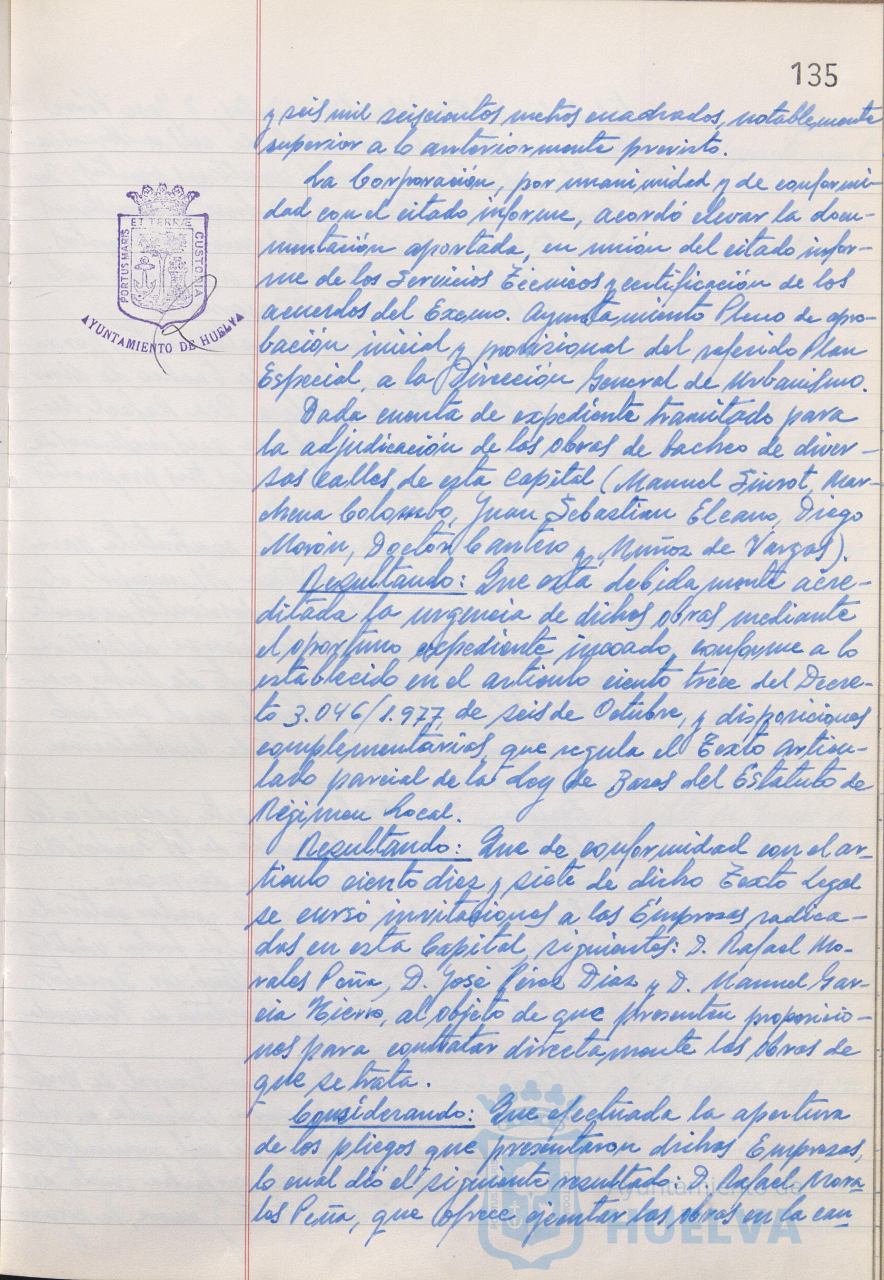 135
y seis mil seiscientos metros cuadrados, notablemente
superior a lo anteriormente previsto.
La Corporación, por unanimidad y de conformi-
dad con el citado informe, acordó elevar la docu-
mentación aportada, en unión del citado infor-
me de los Servicios Técnicos y certificación de los
acuerdos del Excmo. Ayuntamiento Pleno de apro-
bación inicial y provisional del referido Plan
Especial, a la Dirección General de Urbanismo.
Dada cuenta de expediente tramitado para
la adjudicación de las obras de bacheo de diver-
sas calles de esta Capital (Manuel Siurot, Mar-
chena Colombo, Juan Sebastian Elcano, Diego
Morón, Doctor Cantero y Muñoz de Vargas).
Resultando: Que está debidamente acre-
ditada la urgencia de dichas obras mediante
el oportuno expediente incoado, conforme a lo
establecido en el artículo ciento trece del Decre-
to 3.046/1.977, de seis de Octubre, y disposiciones
complementarias, que regula el Texto articu-
lado parcial de la Ley de Bases del Estatuto de
Régimen Local.
Resultando: Que de conformidad con el ar-
tículo ciento diez y siete de dicho Texto Legal
se cursó invitaciones a las Empresas radica-
das en esta Capital, siguientes: D. Rafael Mo-
rales Peña, D. José Pérez Diaz y D. Manuel Gar-
cia Hierro, al objeto de que presenten proposicio-
nes para contratar directamente las obras de
que se trata.
Considerando: Que efectuada la apertura
de los pliegos que presentaron dichas Empresas,
lo cual dió el siguiente resultado: D. Rafael Mora-
les Peña, que ofrece ejecutar las obras en la can-
PORTUS MARIS ET TERRÆ CUSTODIA
AYUNTAMIENTO DE HUELVA
Ayuntamiento de
HUELVA